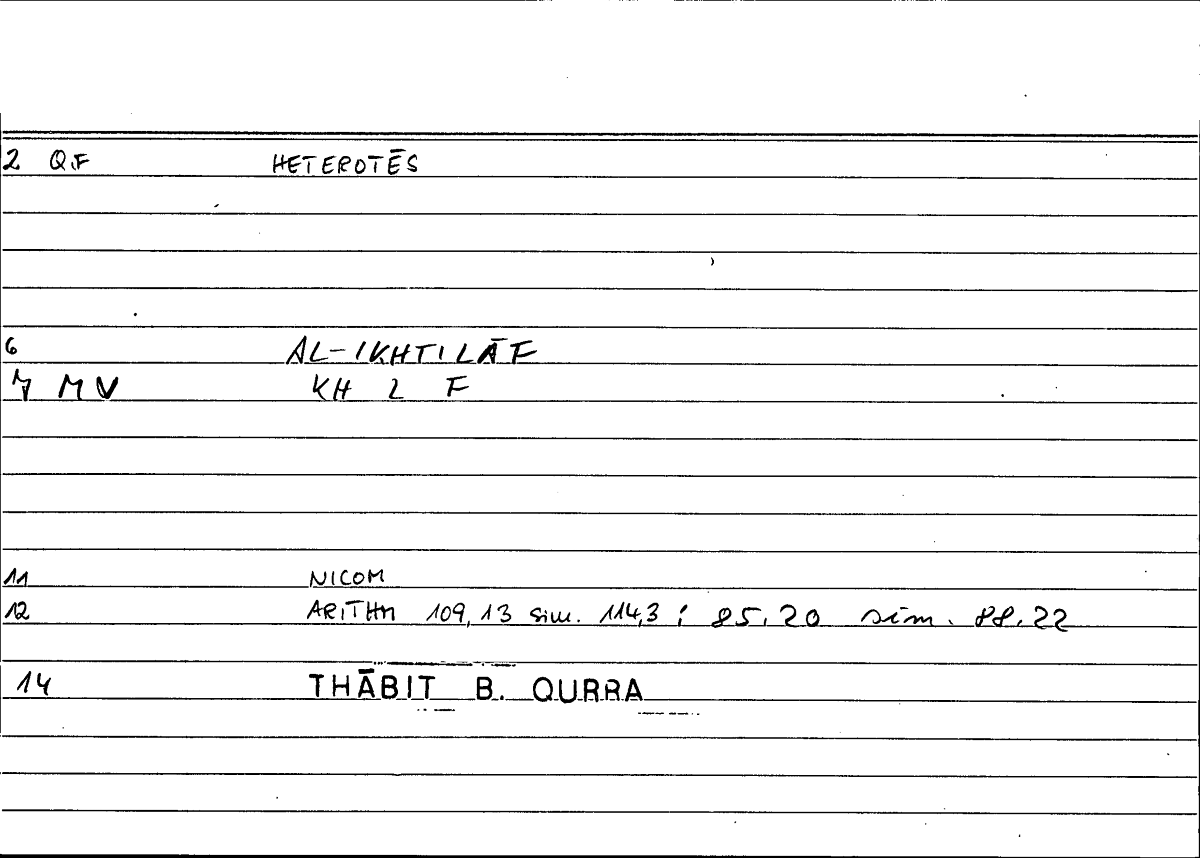 2 Q.F HETEROTĒS
6 AL-IKHTILĀF
7 MV KH L F
11 NICOM
12 ARITHM 109,13 sim. 114,3 ; 85.20 sim. 88.22
14 THĀBIT B. QURRA